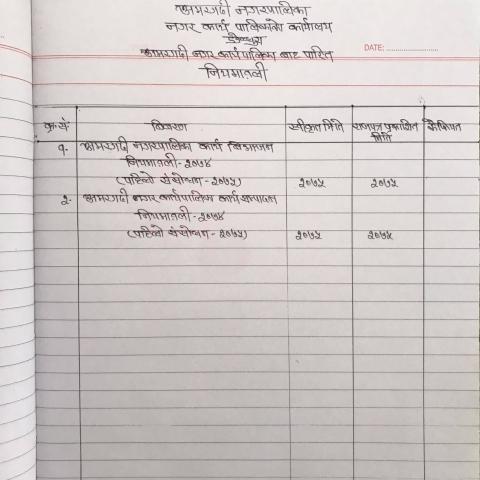 अमरगढी नगरपालिका
नगर कार्य पालिकाको कार्यालय
डडेल्धुरा
अमरगढी नगर कार्यपालिका बाट पारित
DATE:
नियमावली
क्र.सं. विवरण स्वीकृत मिति राजपत्र प्रकाशित मिति कैफियत
१. अमरगढी नगरपालिका कार्य विभाजन
नियमावली - २०७४
(पहिलो संशोधन - २०७५) २०७५ २०७५
२. अमरगढी नगर कार्यपालिका कार्य सम्पादन
नियमावली - २०७४
(पहिलो संशोधन - २०७५) २०७५ २०७५